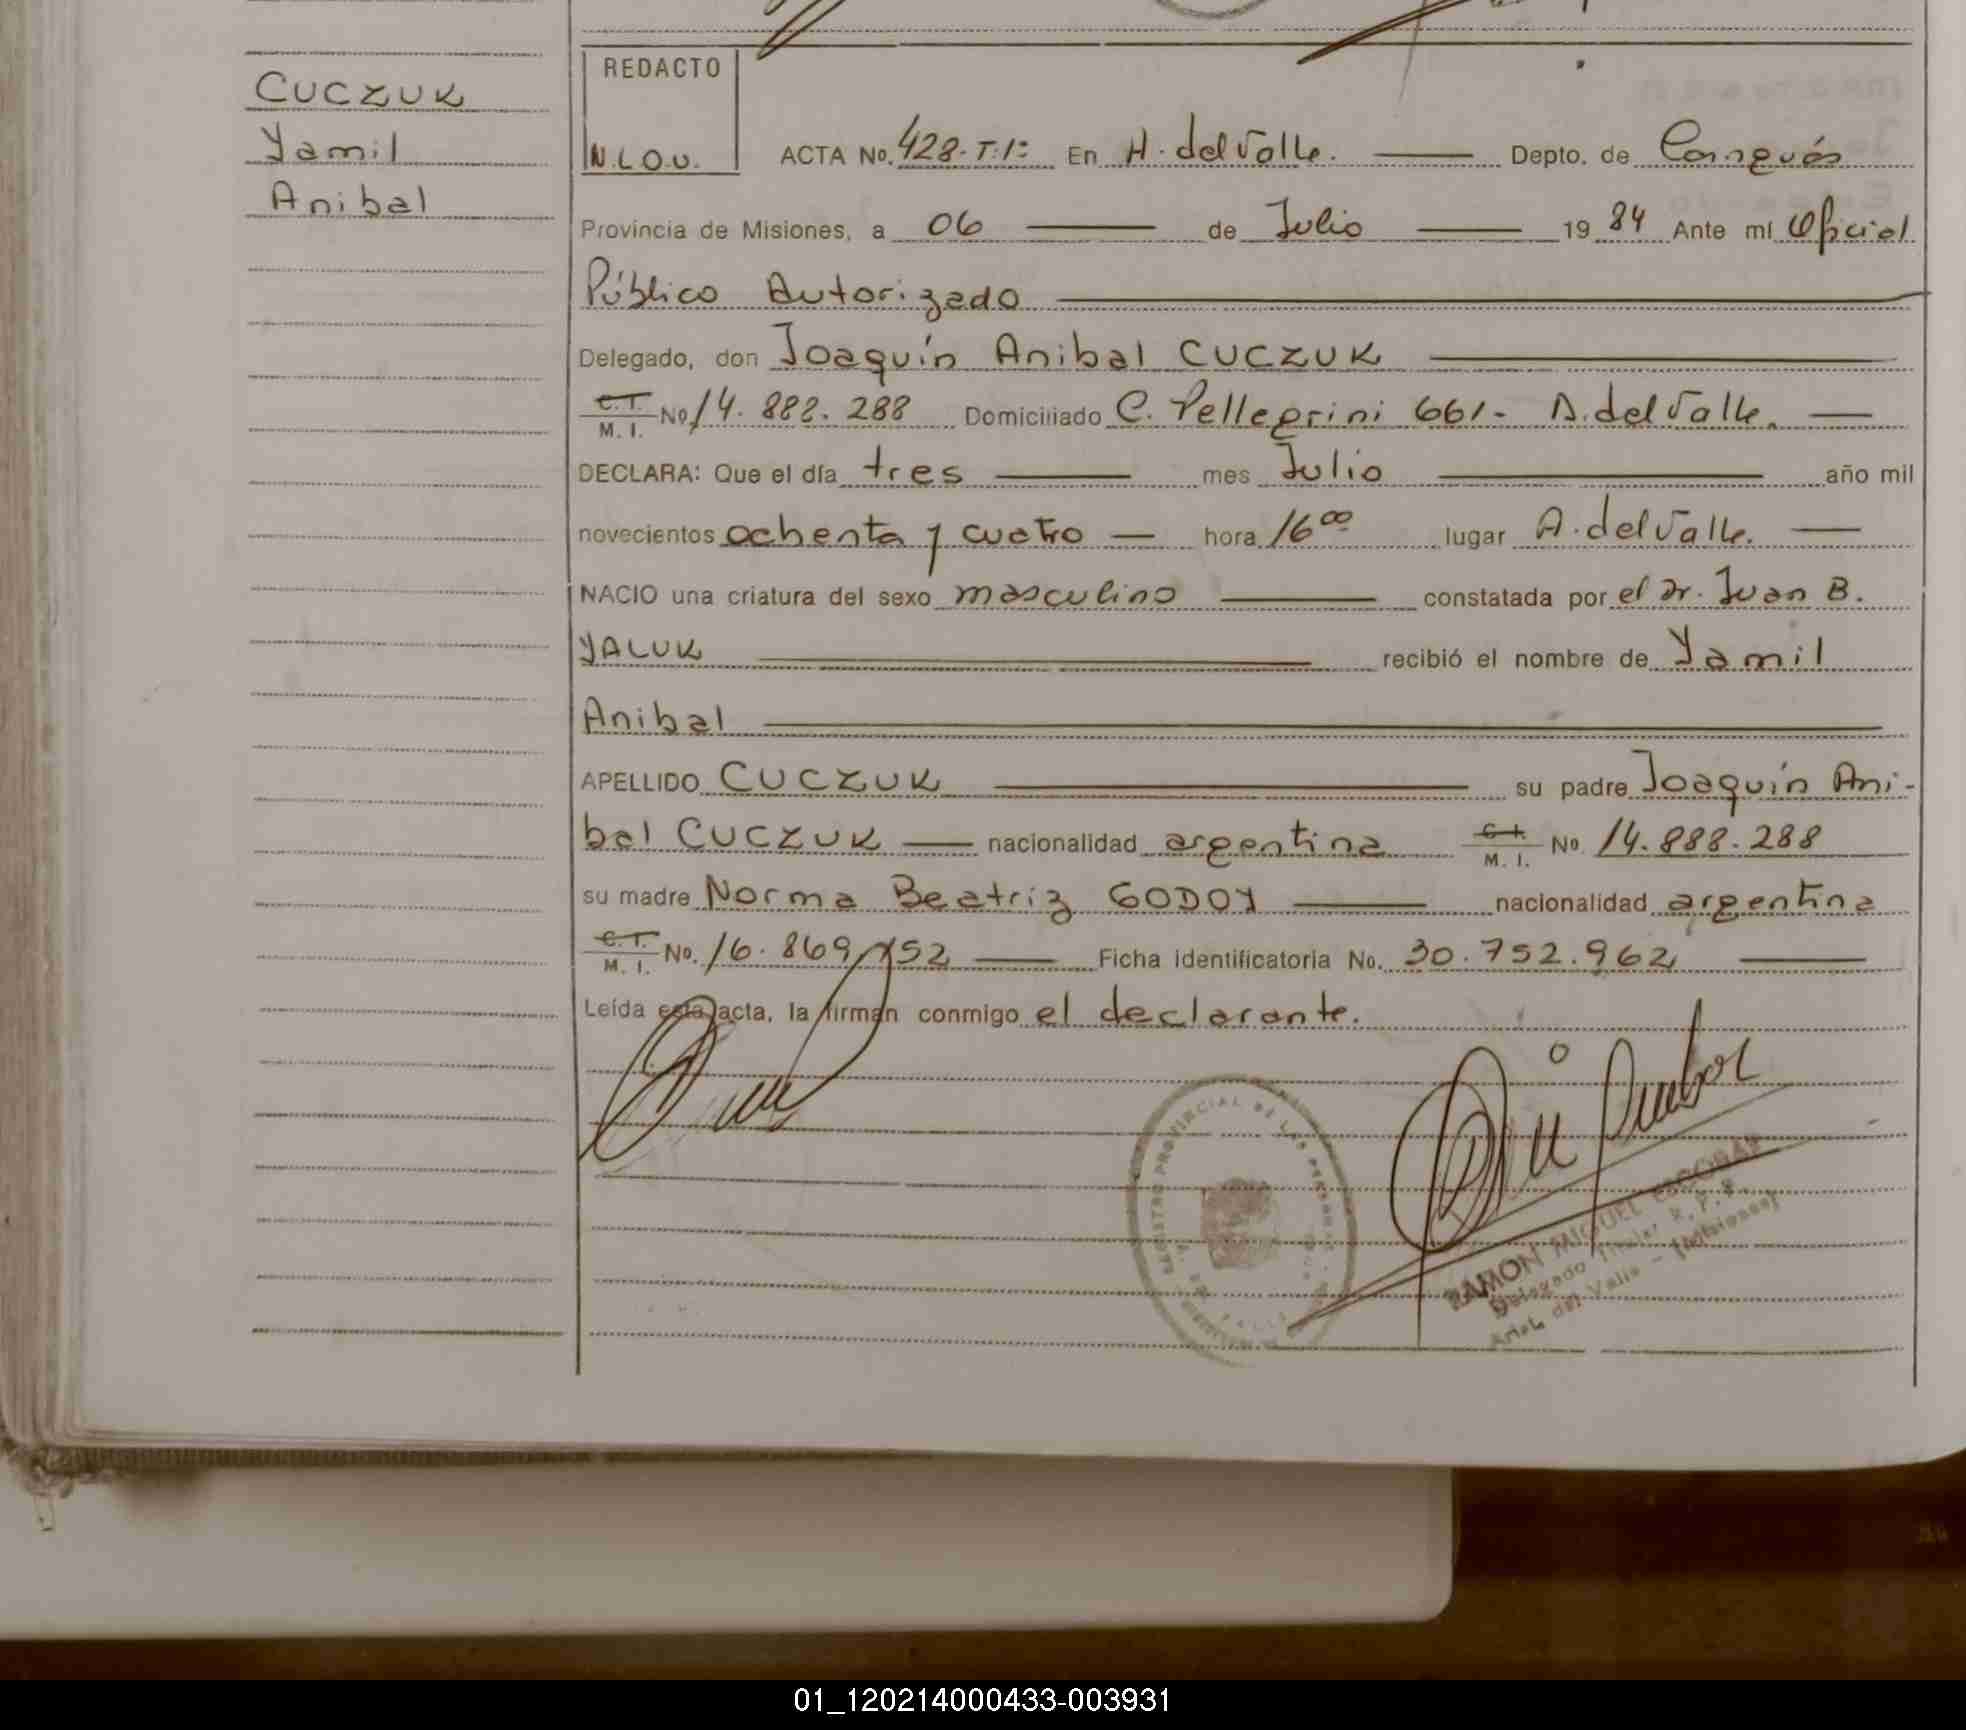 CUCZUK
Yamil
Anibal
REDACTO
N.L.O.U.
ACTA No. 428-T.1º En A. del Valle. Depto. de Cainguás
Provincia de Misiones, a 06 de Julio 19 84 Ante mí Oficial
Público Autorizado
Delegado, don Joaquín Anibal CUCZUK
C.I. M.I. No 14.888.288 Domiciliado C. Pellegrini 661- A. del Valle.
DECLARA: Que el día tres mes Julio año mil
novecientos ochenta y cuatro hora 16 00 lugar A. del Valle.
NACIO una criatura del sexo masculino constatada por el Dr. Juan B.
YALUK recibió el nombre de Yamil
Anibal
APELLIDO CUCZUK su padre Joaquín Ani-
bal CUCZUK nacionalidad argentina C.I. M.I. No. 14.888.288
su madre Norma Beatriz GODOY nacionalidad argentina
C.I. M.I. No. 16.869.152 Ficha identificatoria No. 30.752.962
Leída esta acta, la firman conmigo el declarante.
REGISTRO PROVINCIAL DE LAS PERSONAS
RAMON MIGUEL ESCOBAR
Delegado Titular R. P. P.
Arist. del Valle - (Misiones)
01_120214000433-003931